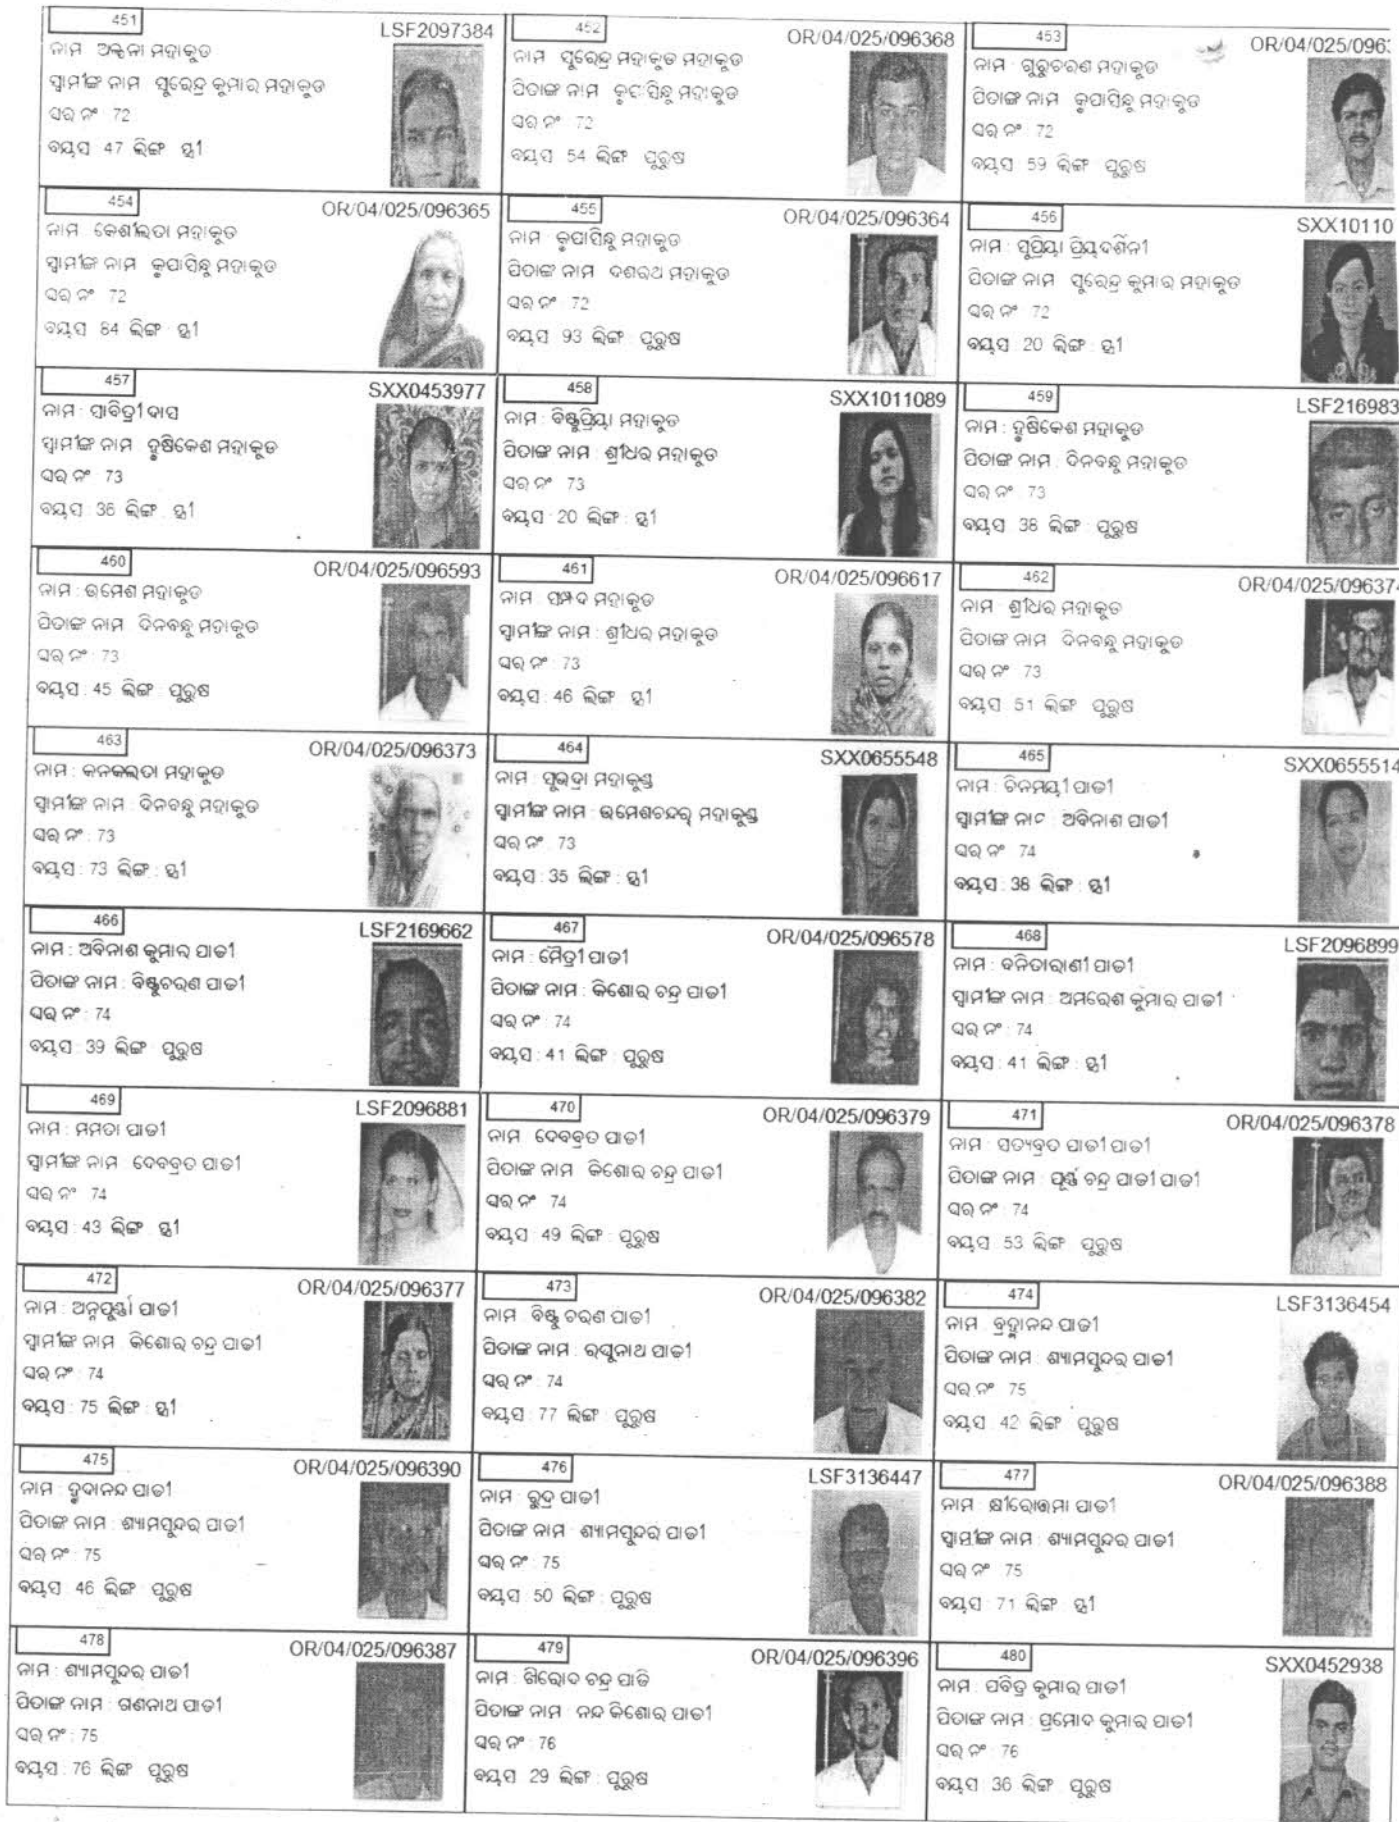 451 LSF2097384
ନାମ ଅଳ୍ପନା ମହାକୁଡ
ସ୍ଵାମୀଙ୍କ ନାମ ସୁରେନ୍ଦ୍ର କୁମାର ମହାକୁଡ
ଘର ନଂ 72
ବୟସ 47 ଲିଙ୍ଗ ସ୍ତ୍ରୀ
452 OR/04/025/096368
ନାମ ସୁରେନ୍ଦ୍ର ମହାକୁଡ ମହାକୁଡ
ପିତାଙ୍କ ନାମ କୃପାସିନ୍ଧୁ ମହାକୁଡ
ଘର ନଂ 72
ବୟସ 54 ଲିଙ୍ଗ ପୁରୁଷ
453 OR/04/025/096
ନାମ ଗୁରୁଚରଣ ମହାକୁଡ
ପିତାଙ୍କ ନାମ କୃପାସିନ୍ଧୁ ମହାକୁଡ
ଘର ନଂ 72
ବୟସ 59 ଲିଙ୍ଗ ପୁରୁଷ
454 OR/04/025/096365
ନାମ : କେଶୀଲତା ମହାକୁଡ
ସ୍ଵାମୀଙ୍କ ନାମ କୃପାସିନ୍ଧୁ ମହାକୁଡ
ଘର ନଂ 72
ବୟସ 84 ଲିଙ୍ଗ : ସ୍ତ୍ରୀ
455 OR/04/025/096364
ନାମ : କୃପାସିନ୍ଧୁ ମହାକୁଡ
ପିତାଙ୍କ ନାମ ଦଶରଥ ମହାକୁଡ
ଘର ନଂ 72
ବୟସ 93 ଲିଙ୍ଗ : ପୁରୁଷ
456 SXX10110
ନାମ : ସୁପ୍ରିୟା ପ୍ରିୟଦର୍ଶିନୀ
ପିତାଙ୍କ ନାମ ସୁରେନ୍ଦ୍ର କୁମାର ମହାକୁଡ
ଘର ନଂ 72
ବୟସ : 20 ଲିଙ୍ଗ : ସ୍ତ୍ରୀ
457 SXX0453977
ନାମ : ସାବିତ୍ରୀ ଦାସ
ସ୍ଵାମୀଙ୍କ ନାମ ହୃଷିକେଶ ମହାକୁଡ
ଘର ନଂ 73
ବୟସ : 36 ଲିଙ୍ଗ : ସ୍ତ୍ରୀ
458 SXX1011089
ନାମ : ବିଷ୍ଣୁପ୍ରିୟା ମହାକୁଡ
ପିତାଙ୍କ ନାମ : ଶ୍ରୀଧର ମହାକୁଡ
ଘର ନଂ 73
ବୟସ : 20 ଲିଙ୍ଗ : ସ୍ତ୍ରୀ
459 LSF216983
ନାମ : ହୃଷିକେଶ ମହାକୁଡ
ପିତାଙ୍କ ନାମ : ଦିନବନ୍ଧୁ ମହାକୁଡ
ଘର ନଂ 73
ବୟସ 38 ଲିଙ୍ଗ : ପୁରୁଷ
460 OR/04/025/096593
ନାମ : ଉମେଶ ମହାକୁଡ
ପିତାଙ୍କ ନାମ ଦିନବନ୍ଧୁ ମହାକୁଡ
ଘର ନଂ : 73
ବୟସ : 45 ଲିଙ୍ଗ : ପୁରୁଷ
461 OR/04/025/096617
ନାମ : ସମ୍ପଦ ମହାକୁଡ
ସ୍ଵାମୀଙ୍କ ନାମ : ଶ୍ରୀଧର ମହାକୁଡ
ଘର ନଂ : 73
ବୟସ : 46 ଲିଙ୍ଗ ସ୍ତ୍ରୀ
462 OR/04/025/096374
ନାମ : ଶ୍ରୀଧର ମହାକୁଡ
ପିତାଙ୍କ ନାମ ଦିନବନ୍ଧୁ ମହାକୁଡ
ଘର ନଂ 73
ବୟସ 51 ଲିଙ୍ଗ ପୁରୁଷ
463 OR/04/025/096373
ନାମ : କନକଲତା ମହାକୁଡ
ସ୍ଵାମୀଙ୍କ ନାମ : ଦିନବନ୍ଧୁ ମହାକୁଡ
ଘର ନଂ : 73
ବୟସ : 73 ଲିଙ୍ଗ : ସ୍ତ୍ରୀ
464 SXX0655548
ନାମ : ସୁଭଦ୍ରା ମହାକୁଣ୍ଡ
ସ୍ଵାମୀଙ୍କ ନାମ : ଉମେଶଚନ୍ଦର୍ ମହାକୁଣ୍ଡ
ଘର ନଂ : 73
ବୟସ : 35 ଲିଙ୍ଗ : ସ୍ତ୍ରୀ
465 SXX0655514
ନାମ : ଚିନମୟୀ ପାଢୀ
ସ୍ଵାମୀଙ୍କ ନାମ : ଅବିନାଶ ପାଢୀ
ଘର ନଂ 74
ବୟସ : 38 ଲିଙ୍ଗ : ସ୍ତ୍ରୀ
466 LSF2169662
ନାମ : ଅବିନାଶ କୁମାର ପାଢୀ
ପିତାଙ୍କ ନାମ : ବିଷ୍ଣୁଚରଣ ପାଢୀ
ଘର ନଂ : 74
ବୟସ : 39 ଲିଙ୍ଗ ପୁରୁଷ
467 OR/04/025/096578
ନାମ : ମୈତ୍ରୀ ପାଢୀ
ପିତାଙ୍କ ନାମ : କିଶୋର ଚନ୍ଦ୍ର ପାଢୀ
ଘର ନଂ : 74
ବୟସ : 41 ଲିଙ୍ଗ : ପୁରୁଷ
468 LSF2096899
ନାମ : ବନିତାରାଣୀ ପାଢୀ
ସ୍ଵାମୀଙ୍କ ନାମ : ଅମରେଶ କୁମାର ପାଢୀ
ଘର ନଂ : 74
ବୟସ : 41 ଲିଙ୍ଗ : ସ୍ତ୍ରୀ
469 LSF2096881
ନାମ : ମମତା ପାଢୀ
ସ୍ଵାମୀଙ୍କ ନାମ ଦେବବ୍ରତ ପାଢୀ
ଘର ନଂ 74
ବୟସ : 43 ଲିଙ୍ଗ ସ୍ତ୍ରୀ
470 OR/04/025/096379
ନାମ ଦେବବ୍ରତ ପାଢୀ
ପିତାଙ୍କ ନାମ କିଶୋର ଚନ୍ଦ୍ର ପାଢୀ
ଘର ନଂ 74
ବୟସ : 49 ଲିଙ୍ଗ : ପୁରୁଷ
471 OR/04/025/096378
ନାମ : ସତ୍ୟବ୍ରତ ପାଢୀ ପାଢୀ
ପିତାଙ୍କ ନାମ : ପୂର୍ଣ୍ଣ ଚନ୍ଦ୍ର ପାଢୀ ପାଢୀ
ଘର ନଂ : 74
ବୟସ 53 ଲିଙ୍ଗ ପୁରୁଷ
472 OR/04/025/096377
ନାମ : ଅନ୍ନପୂର୍ଣ୍ଣା ପାଢୀ
ସ୍ଵାମୀଙ୍କ ନାମ କିଶୋର ଚନ୍ଦ୍ର ପାଢୀ
ଘର ନଂ : 74
ବୟସ : 75 ଲିଙ୍ଗ : ସ୍ତ୍ରୀ
473 OR/04/025/096382
ନାମ : ବିଷ୍ଣୁ ଚରଣ ପାଢୀ
ପିତାଙ୍କ ନାମ : ରଘୁନାଥ ପାଢୀ
ଘର ନଂ : 74
ବୟସ : 77 ଲିଙ୍ଗ : ପୁରୁଷ
474 LSF3136454
ନାମ : ବ୍ରହ୍ମାନନ୍ଦ ପାଢୀ
ପିତାଙ୍କ ନାମ : ଶ୍ୟାମସୁନ୍ଦର ପାଢୀ
ଘର ନଂ 75
ବୟସ : 42 ଲିଙ୍ଗ ପୁରୁଷ
475 OR/04/025/096390
ନାମ : ହୃଦାନନ୍ଦ ପାଢୀ
ପିତାଙ୍କ ନାମ : ଶ୍ୟାମସୁନ୍ଦର ପାଢୀ
ଘର ନଂ : 75
ବୟସ : 46 ଲିଙ୍ଗ ପୁରୁଷ
476 LSF3136447
ନାମ : ରୁଦ୍ର ପାଢୀ
ପିତାଙ୍କ ନାମ : ଶ୍ୟାମସୁନ୍ଦର ପାଢୀ
ଘର ନଂ : 75
ବୟସ : 50 ଲିଙ୍ଗ : ପୁରୁଷ
477 OR/04/025/096388
ନାମ : କ୍ଷୀରୋତ୍ତମା ପାଢୀ
ସ୍ଵାମୀଙ୍କ ନାମ : ଶ୍ୟାମସୁନ୍ଦର ପାଢୀ
ଘର ନଂ : 75
ବୟସ : 71 ଲିଙ୍ଗ ସ୍ତ୍ରୀ
478 OR/04/025/096387
ନାମ : ଶ୍ୟାମସୁନ୍ଦର ପାଢୀ
ପିତାଙ୍କ ନାମ : ଗଣନାଥ ପାଢୀ
ଘର ନଂ : 75
ବୟସ : 76 ଲିଙ୍ଗ ପୁରୁଷ
479 OR/04/025/096396
ନାମ : ଖିରୋଦ ଚନ୍ଦ୍ର ପାଢି
ପିତାଙ୍କ ନାମ : ନନ୍ଦ କିଶୋର ପାଢୀ
ଘର ନଂ : 76
ବୟସ 29 ଲିଙ୍ଗ : ପୁରୁଷ
480 SXX0452938
ନାମ : ପବିତ୍ର କୁମାର ପାଢୀ
ପିତାଙ୍କ ନାମ : ପ୍ରମୋଦ କୁମାର ପାଢୀ
ଘର ନଂ : 76
ବୟସ : 36 ଲିଙ୍ଗ : ପୁରୁଷ